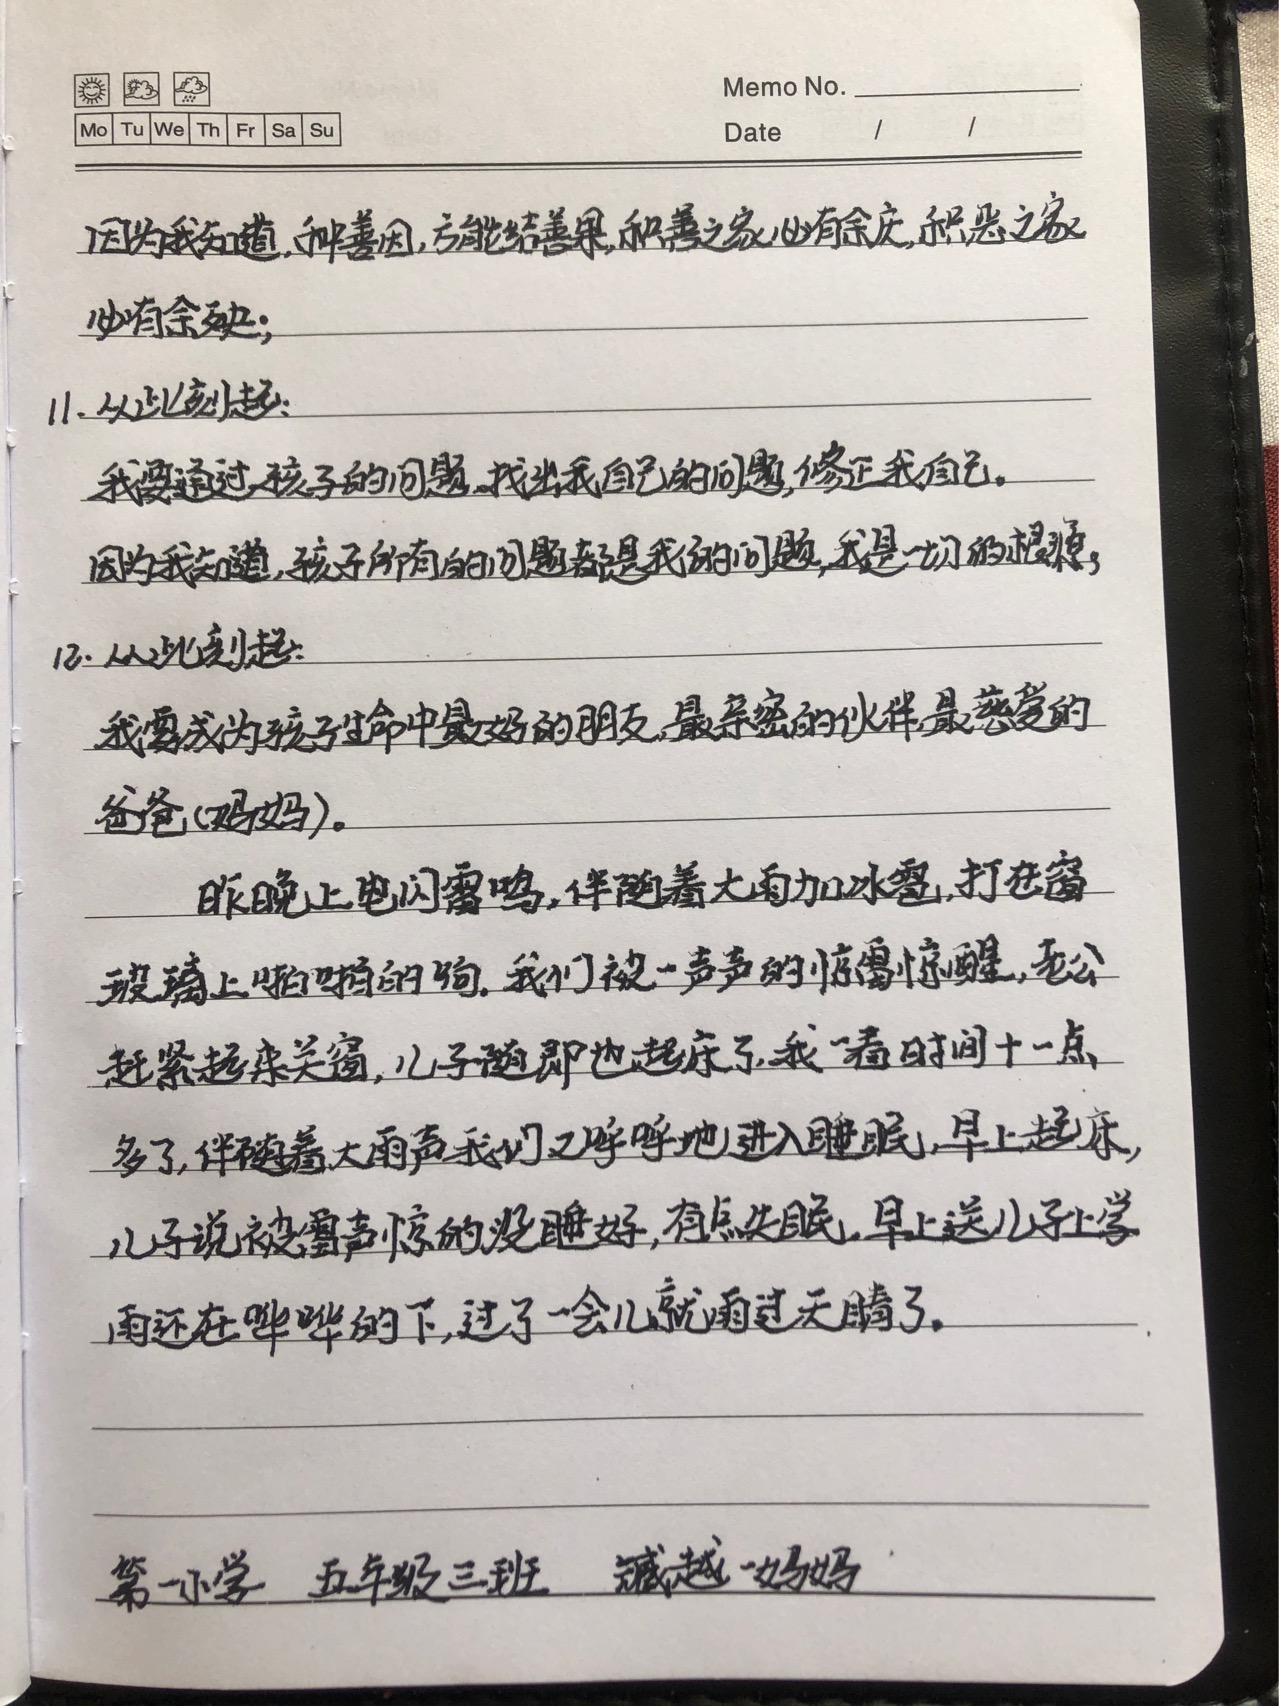 Memo No.
Mo Tu We Th Fr Sa Su
Date / /
因为我知道,种善因,方能结善果,积善之家必有余庆,积恶之家
必有余殃;
11.从此刻起:
我要通过孩子的问题,找出我自己的问题,修正我自己。
因为我知道,孩子所有的问题都是我的问题,我是一切的根源;
12.从此刻起:
我要成为孩子生命中最好的朋友,最亲密的伙伴,最慈爱的
爸爸(妈妈)。
昨晚上电闪雷鸣,伴随着大雨加冰雹,打在窗
玻璃上啪啪的响。我们被一声声的惊雷惊醒,老公
赶紧起来关窗,儿子随即也起床了,我一看时间十一点
多了,伴随着大雨声我们又呼呼地进入睡眠,早上起床,
儿子说被雷声惊的没睡好,有点失眠。早上送儿子上学
雨还在哗哗的下,过了一会儿就雨过天晴了。
第一小学 五年级三班 越一妈妈